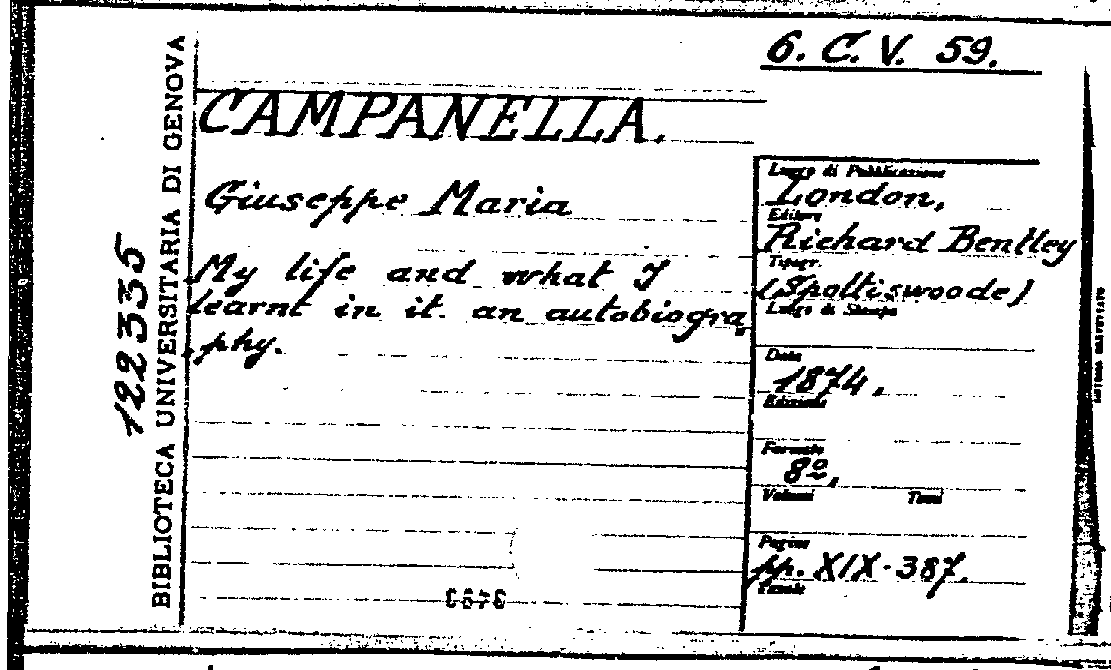 6. C. V. 59.
CAMPANELLA.
Giuseppe Maria
My life and what I
learnt in it. an autobiogra
phy.
Luogo di Pubblicazione
London,
Editore
Richard Bentley
Tipogr.
(Spottiswoode)
Luogo di Stampa
Data
1874.
Edizione
Formato
8º,
Volumi Tomi
Pagine
pp. XIX-387.
Tavole
12235
BIBLIOTECA UNIVERSITARIA DI GENOVA